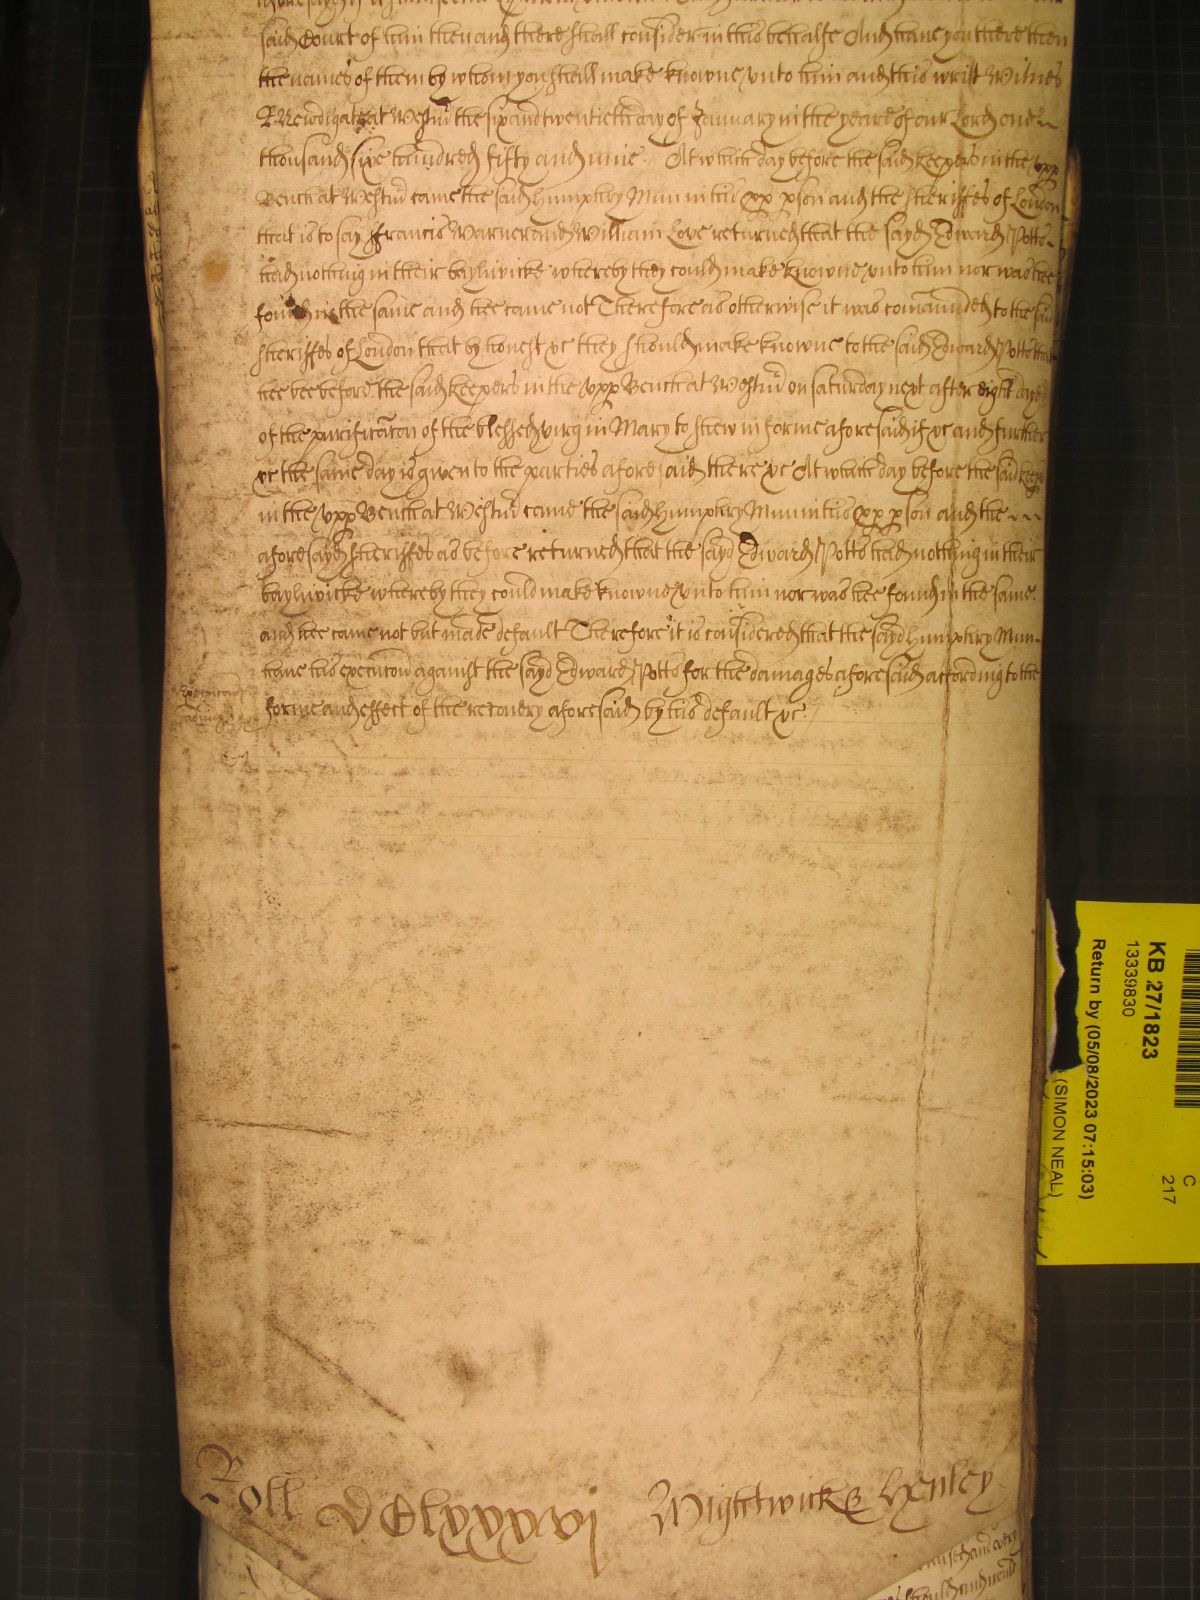 said Court of him then and there shall consider in this behalfe And have you there then
the names of them by whom you shall make knowne unto him and this writt Witnes
R Newdigate at Westmr the six and twentieth day of January in the yeare of our Lord one
thousand six hundred fifty and nine. At which day before the said keepers in the upp
Bench at Westmr came the said Humphry Mun in his pp pson and the sheriffes of London
that is to say Francis Warner and William Love returned that the sayd Edward Potts
had nothing in their bayliwicke whereby they could make knowne unto him nor was hee
found in the same and hee came not Therefore as otherwise it was comaunded to the said
sheriffes of London that by honest &c they should make knowne to the said Edward Potts that
hee bee before the said keepers in the upp Bench at Westmr on saturday next after eight dayes
of the purificacon of the blessed virgin Mary to shew in forme aforesaid if &c and further
&c the same day is given to the parties aforesaid there &c At which day before the said keeps
in the upp Bench at Westmr came the said Humphry Mun in his pp pson and the
aforesayd sheriffes as before returned that the sayd Edward Potts had nothing in their
bayliwicke whereby they could make knowne unto him nor was hee found in the same.
and hee came not but made default Therefore it is considered that the sayd Humphry Mun
have his execucon against the sayd Edward Potts for the damages aforesaid according to the
forme and effect of the recovery aforesaid by his default &c.
Roll DClxxxvj Mightwicke Henley
KB 27/1823
13339830
Return by (05/08/2023 07:15:03)
(SIMON NEAL)
C
217